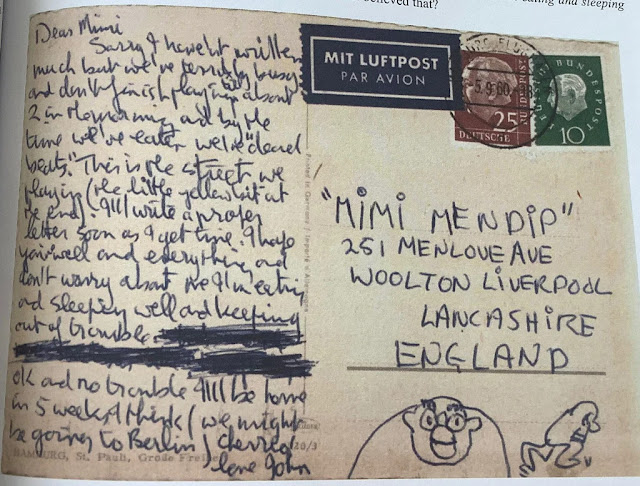 believed that?
eating and sleeping
Dear Mimi
Sorry I haven't written
much but we've terribly busy
and don't finish playing till about
2 in the morning and by the
time we've eaten we're "dead
beats." This is the street we
play in (the little yellow bit at
the end). I'll write a proper
letter soon as I get time. I hope
your well and everything and
don't worry about me I'm eating
and sleeping well and keeping
out of trouble
ok and no trouble I'll be home
in 5 weeks I think (we might
be going to Berlin) cheerio
love John
HAMBURG, St. Pauli, Große Freiheit
20/3
Printed in Germany / Imprimé
MIT LUFTPOST
PAR AVION
-5.9.60
25
DEUTSCHE
BUNDESPOST
BUNDESPOST
10
"MIMI MENDIP"
251 MENLOVE AVE
WOOLTON LIVERPOOL
LANCASHIRE
ENGLAND